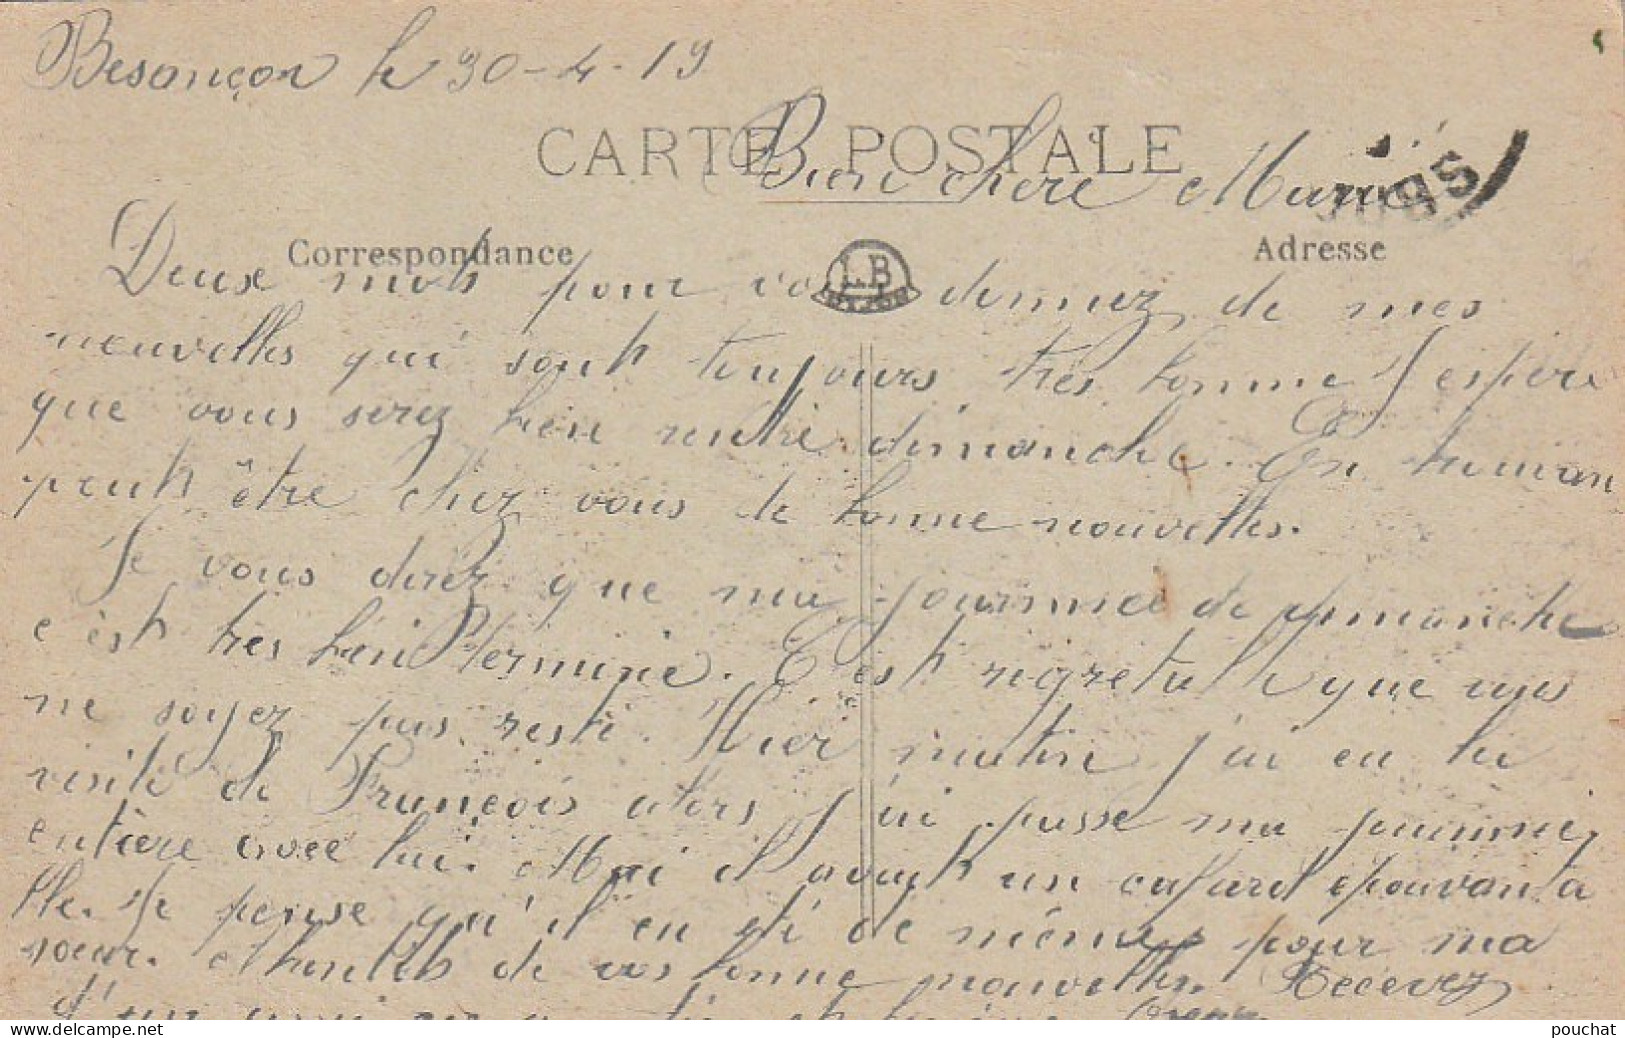 Besançon le 30-4-19
CARTE POSTALE
Bien chère Marie
Correspondance
Adresse
L.B
Deux mots pour vo donnez de mes
nouvelles qui sont toujours très bonne J'espère
que vous serez bien rentré dimanche. En
peut être chez vous de bonne nouvelles.
Je vous direz que ma journnee de dimanche
c'est très bien terminé. C'est que vous
ne soyez pas resté. Hier matin j'ai eu la
visite de François alors j'ai passe ma journnée,
entière avec lui. Moi il avait un cafard épouvanta
ble. Je pense qu'il en été de même pour ma
soeur. de vos bonne nouvelles. Recevez
d'un ami
pouchat
delcampe.net